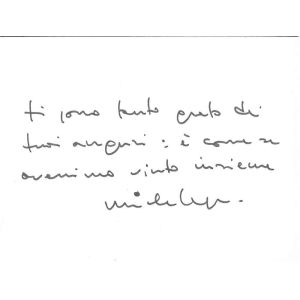 ti sono tanto grato di
tuoi auguri: è come se
avessimo vinto insieme